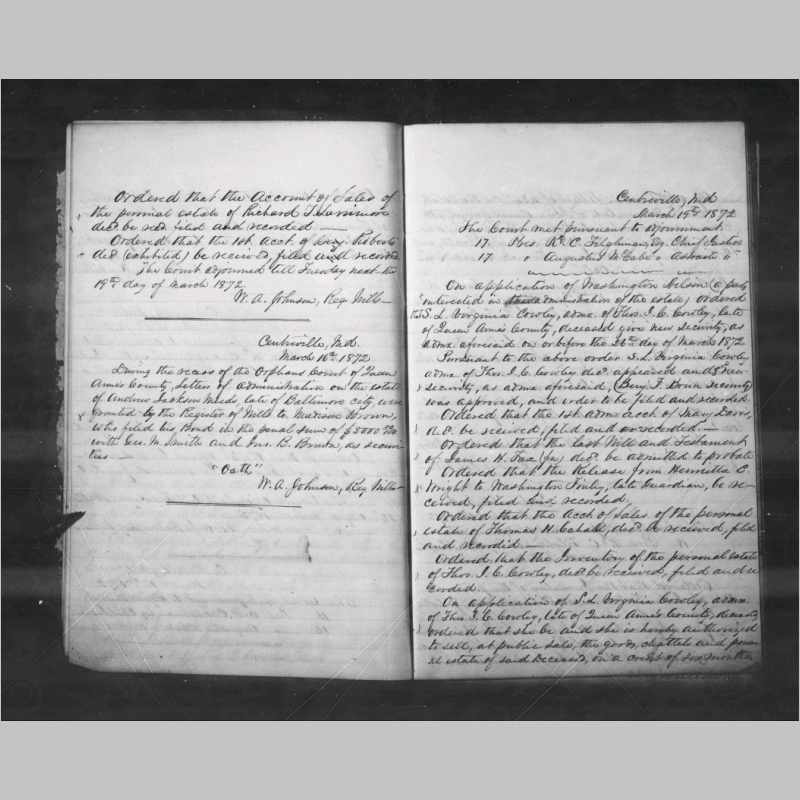 Ordered that the Account of Sales of
the personal estate of Richard T. Larrimore
decd be recd filed and recorded —
Ordered that the 1st. Acct. of Benj. Roberts
decd (exhibited) be received, filed and recorded
The Court adjourned till Tuesday next the
19th day of March 1872
W. A. Johnson, Reg Wills—
Centreville, Md.
March 16th 1872
During the recess of the Orphans Court of Queen
Anne's County, Letters of administration on the estate
of Andrew Jackson Meeds, late of Baltimore city, were
granted by the Register of Wills to Madison Brown,
who filed his Bond in the penal sum of $5000
with Geo. M. Smith and Jno. B. Brown, as secur
ties —
"Oath"
W. A. Johnson, Reg Wills—
Centreville, Md
March 19th 1872
The Court met pursuant to adjournment
17. Pres. R. C. Tilghman, Esq. Chief Justice
17. " Augustus McCabe " Associate "
On application of Washington Nelson (a party
interested in administration of the estate) ordered
that S. L. Virginia Cowley, admx. of Thos. I. C. Cowley, late
of Queen Anne's County, deceased give new security, as
admx aforesaid on or before the 26th day of March 1872
Pursuant to the above order S. L. Virginia Cowley
admx of Thos. I. C. Cowley decd. appeared and new
security, as admx aforesaid, (Benj. F. security)
was approved, and order to be filed and recorded.
Ordered that the 1st admx acct. of Mary Davis,
be received, filed and recorded. —
Ordered that the last Will and Testament
of James H. decd. be admitted to probate
Ordered that the Release from Henrietta C.
Wright to Washington Finley, late Guardian, be re-
ceived, filed and recorded.
Ordered that the Acct of Sales of the personal
estate of Thomas H. Cahall, decd. be received, filed
and recorded —
Ordered that the Inventory of the personal estate
of Thos. I. C. Cowley, decd be received, filed and re
corded.
On application of S. L. Virginia Cowley, admx.
of Thos. I. C. Cowley, late of Queen Anne's County, deceased
ordered that she be and she is hereby authorized
to sell, at public sale, the goods, chattels and perso
al estate of said deceased, on a credit of six months